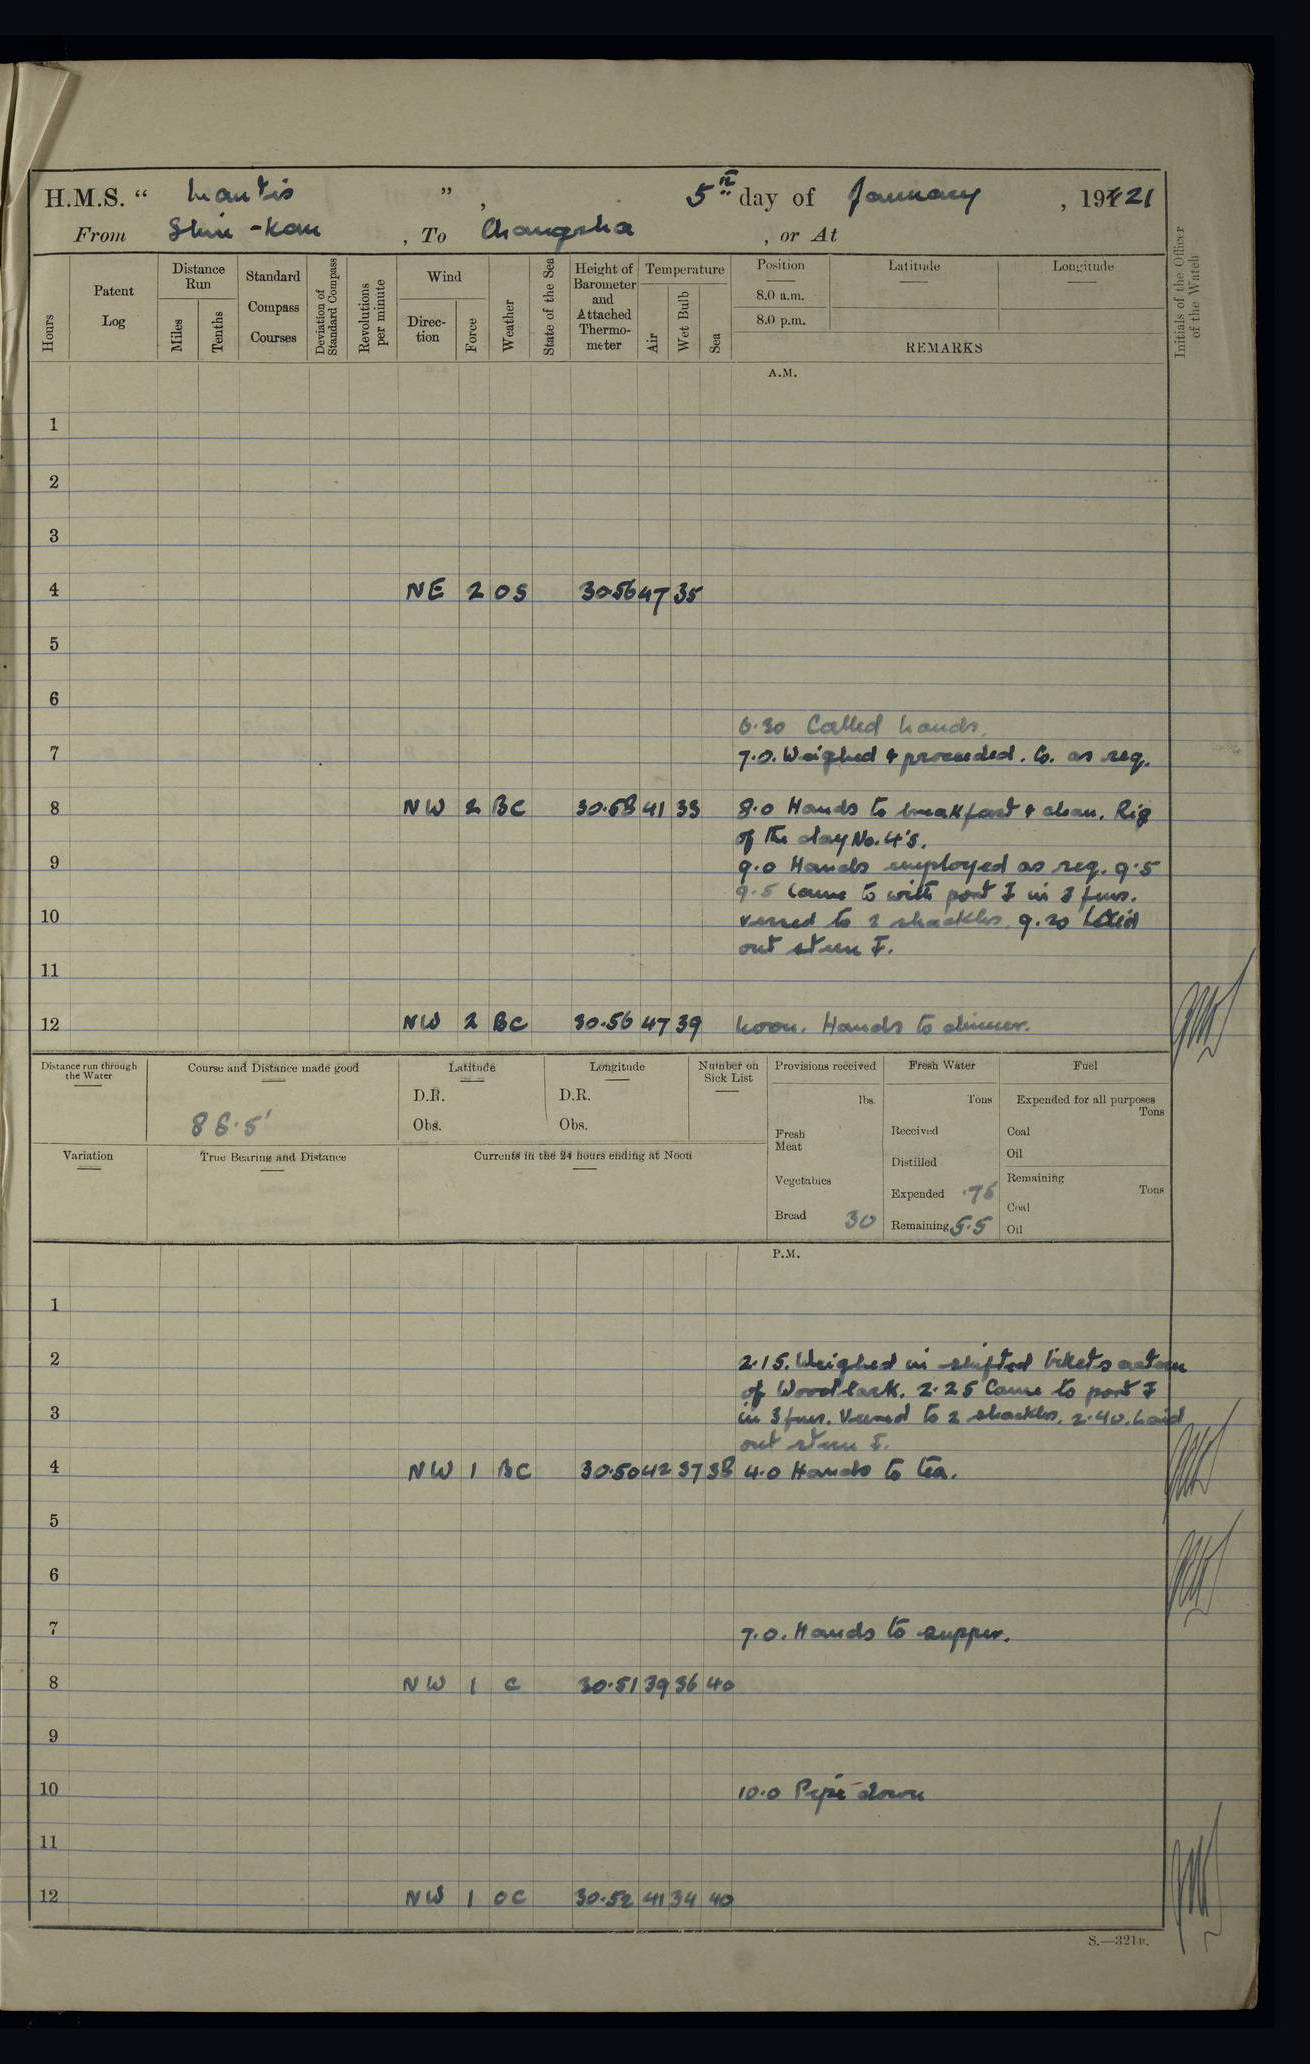 H.M.S. “ Mantis ” , 5th day of January , 1921
From Shin-Kau , To Changsha , or At
Hours
Patent Log
Distance Run
Miles
Tenths
Standard Compass Courses
Deviation of Standard Compass
Revolutions per minute
Wind
Direc-tion
Force
Weather
State of the Sea
Height of Barometer and Attached Thermo-meter
Temperature
Air
Wet Bulb
Sea
Position
8.0 a.m.
8.0 p.m.
Latitude
Longitude
REMARKS
Initials of the Officer of the Watch
A.M.
1
2
3
4 NE 2 OS 30.56 47 35
5
6
6.30 Called hands.
7 7.0. Weighed & proceeded. Co. as req.
8 NW 2 BC 30.58 41 33 8.0 Hands to breakfast & clean. Rig
of the day No. 4's.
9 9.0 Hands employed as req. 9.5
9.5 Came to with port ⚓ in 3 fms.
10 veered to 2 shackles. 9.20 Laid
out stern ⚓.
11
12 NW 2 BC 30.56 47 39 Noon. Hands to dinner.
Distance run through the Water
Course and Distance made good
86.5'
Latitude
D.R.
Obs.
Longitude
D.R.
Obs.
Number on Sick List
Provisions received
lbs.
Fresh Meat
Vegetables
Bread 30
Fresh Water
Tons
Received
Distilled
Expended .75
Remaining 5.5
Fuel
Expended for all purposes
Tons
Coal
Oil
Remaining
Tons
Coal
Oil
Variation
True Bearing and Distance
Currents in the 24 hours ending at Noon
P.M.
1
2 2.15. Weighed & shifted billets astern
of Woodlark. 2.25 Came to port ⚓
3 in 3 fms. Veered to 2 shackles. 2.40. Laid
out stern ⚓.
4 NW 1 BC 30.50 42 37 38 4.0 Hands to tea.
5
6
7 7.0. Hands to supper.
8 NW 1 C 30.51 39 36 40
9
10 10.0 Pipe down
11
12 NW 1 OC 30.52 41 34 40
S.—321B.